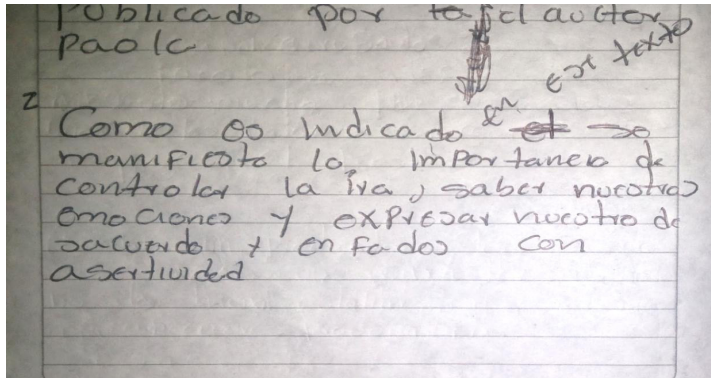 Publicado por el auctor
Paola
2
Como es indicado en este texto se
manifiesta la importancia de
controlar la ira, saber nuestras
emociones y expresar nuestro de
sacuerdo y enfados con
asertividad